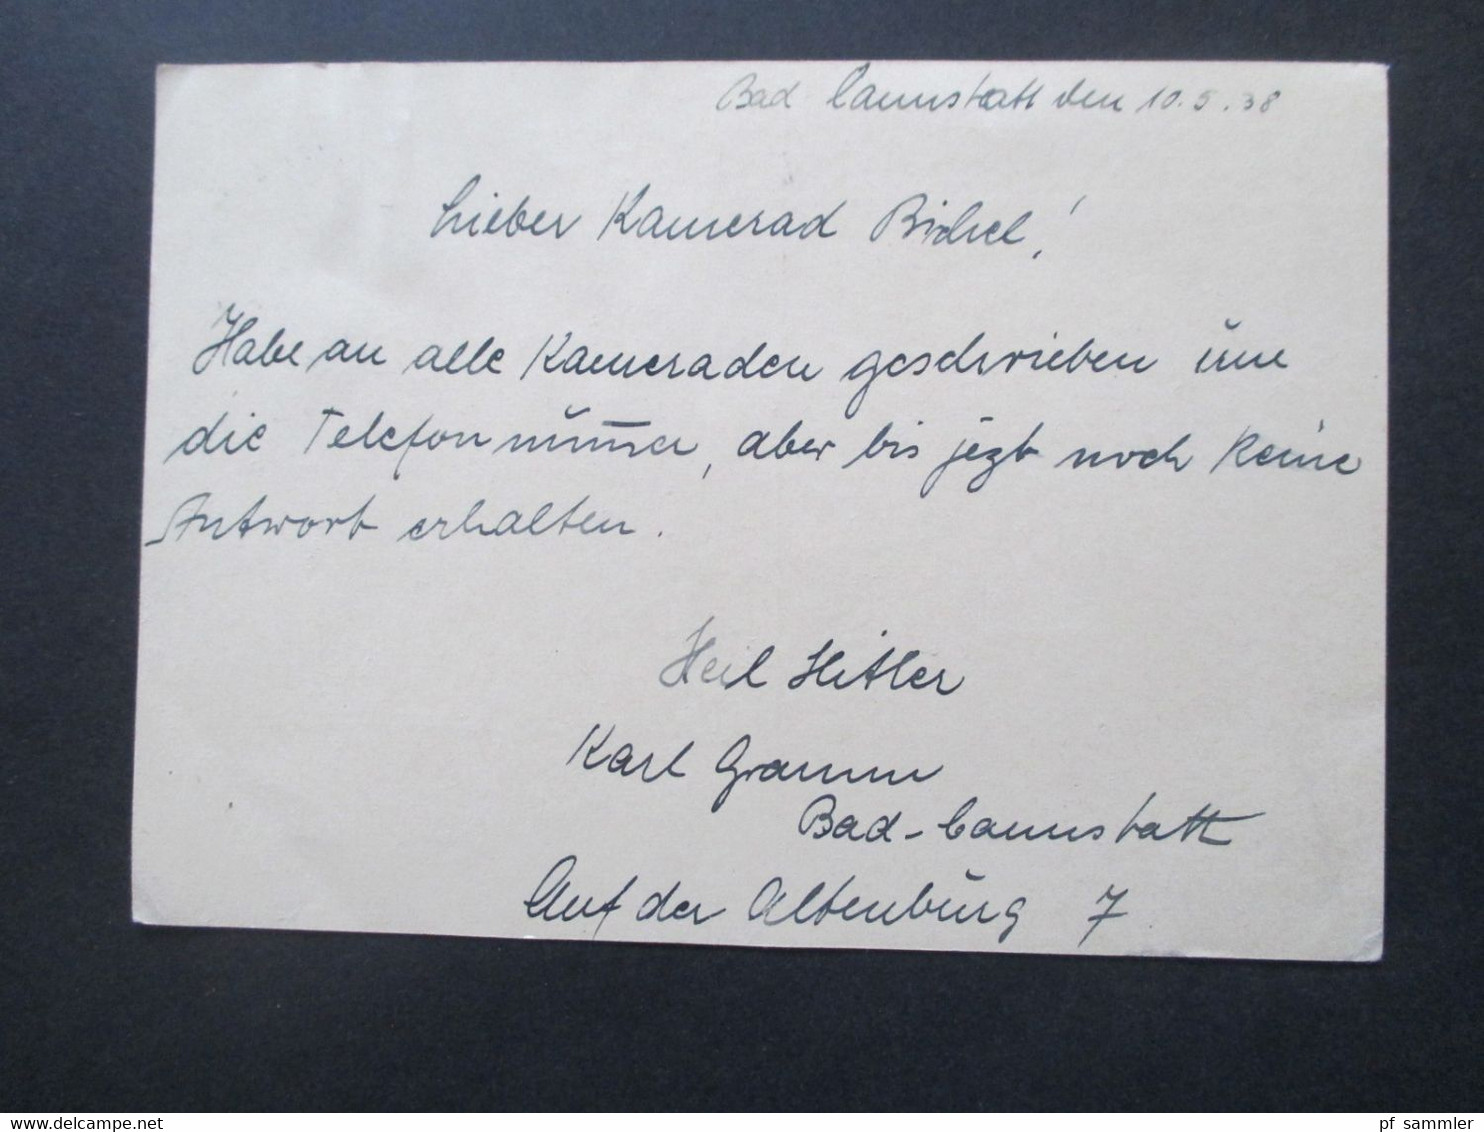 Bad Cannstatt den 10.5.38
Lieber Kamerad Bichel!
Habe an alle Kameraden geschrieben um
die Telefonnummer, aber bis jezt noch keine
Antwort erhalten.
Heil Hitler
Karl Gramm
Bad-Cannstatt
Auf der Altenburg 7
www.delcampe.net
pf_sammler